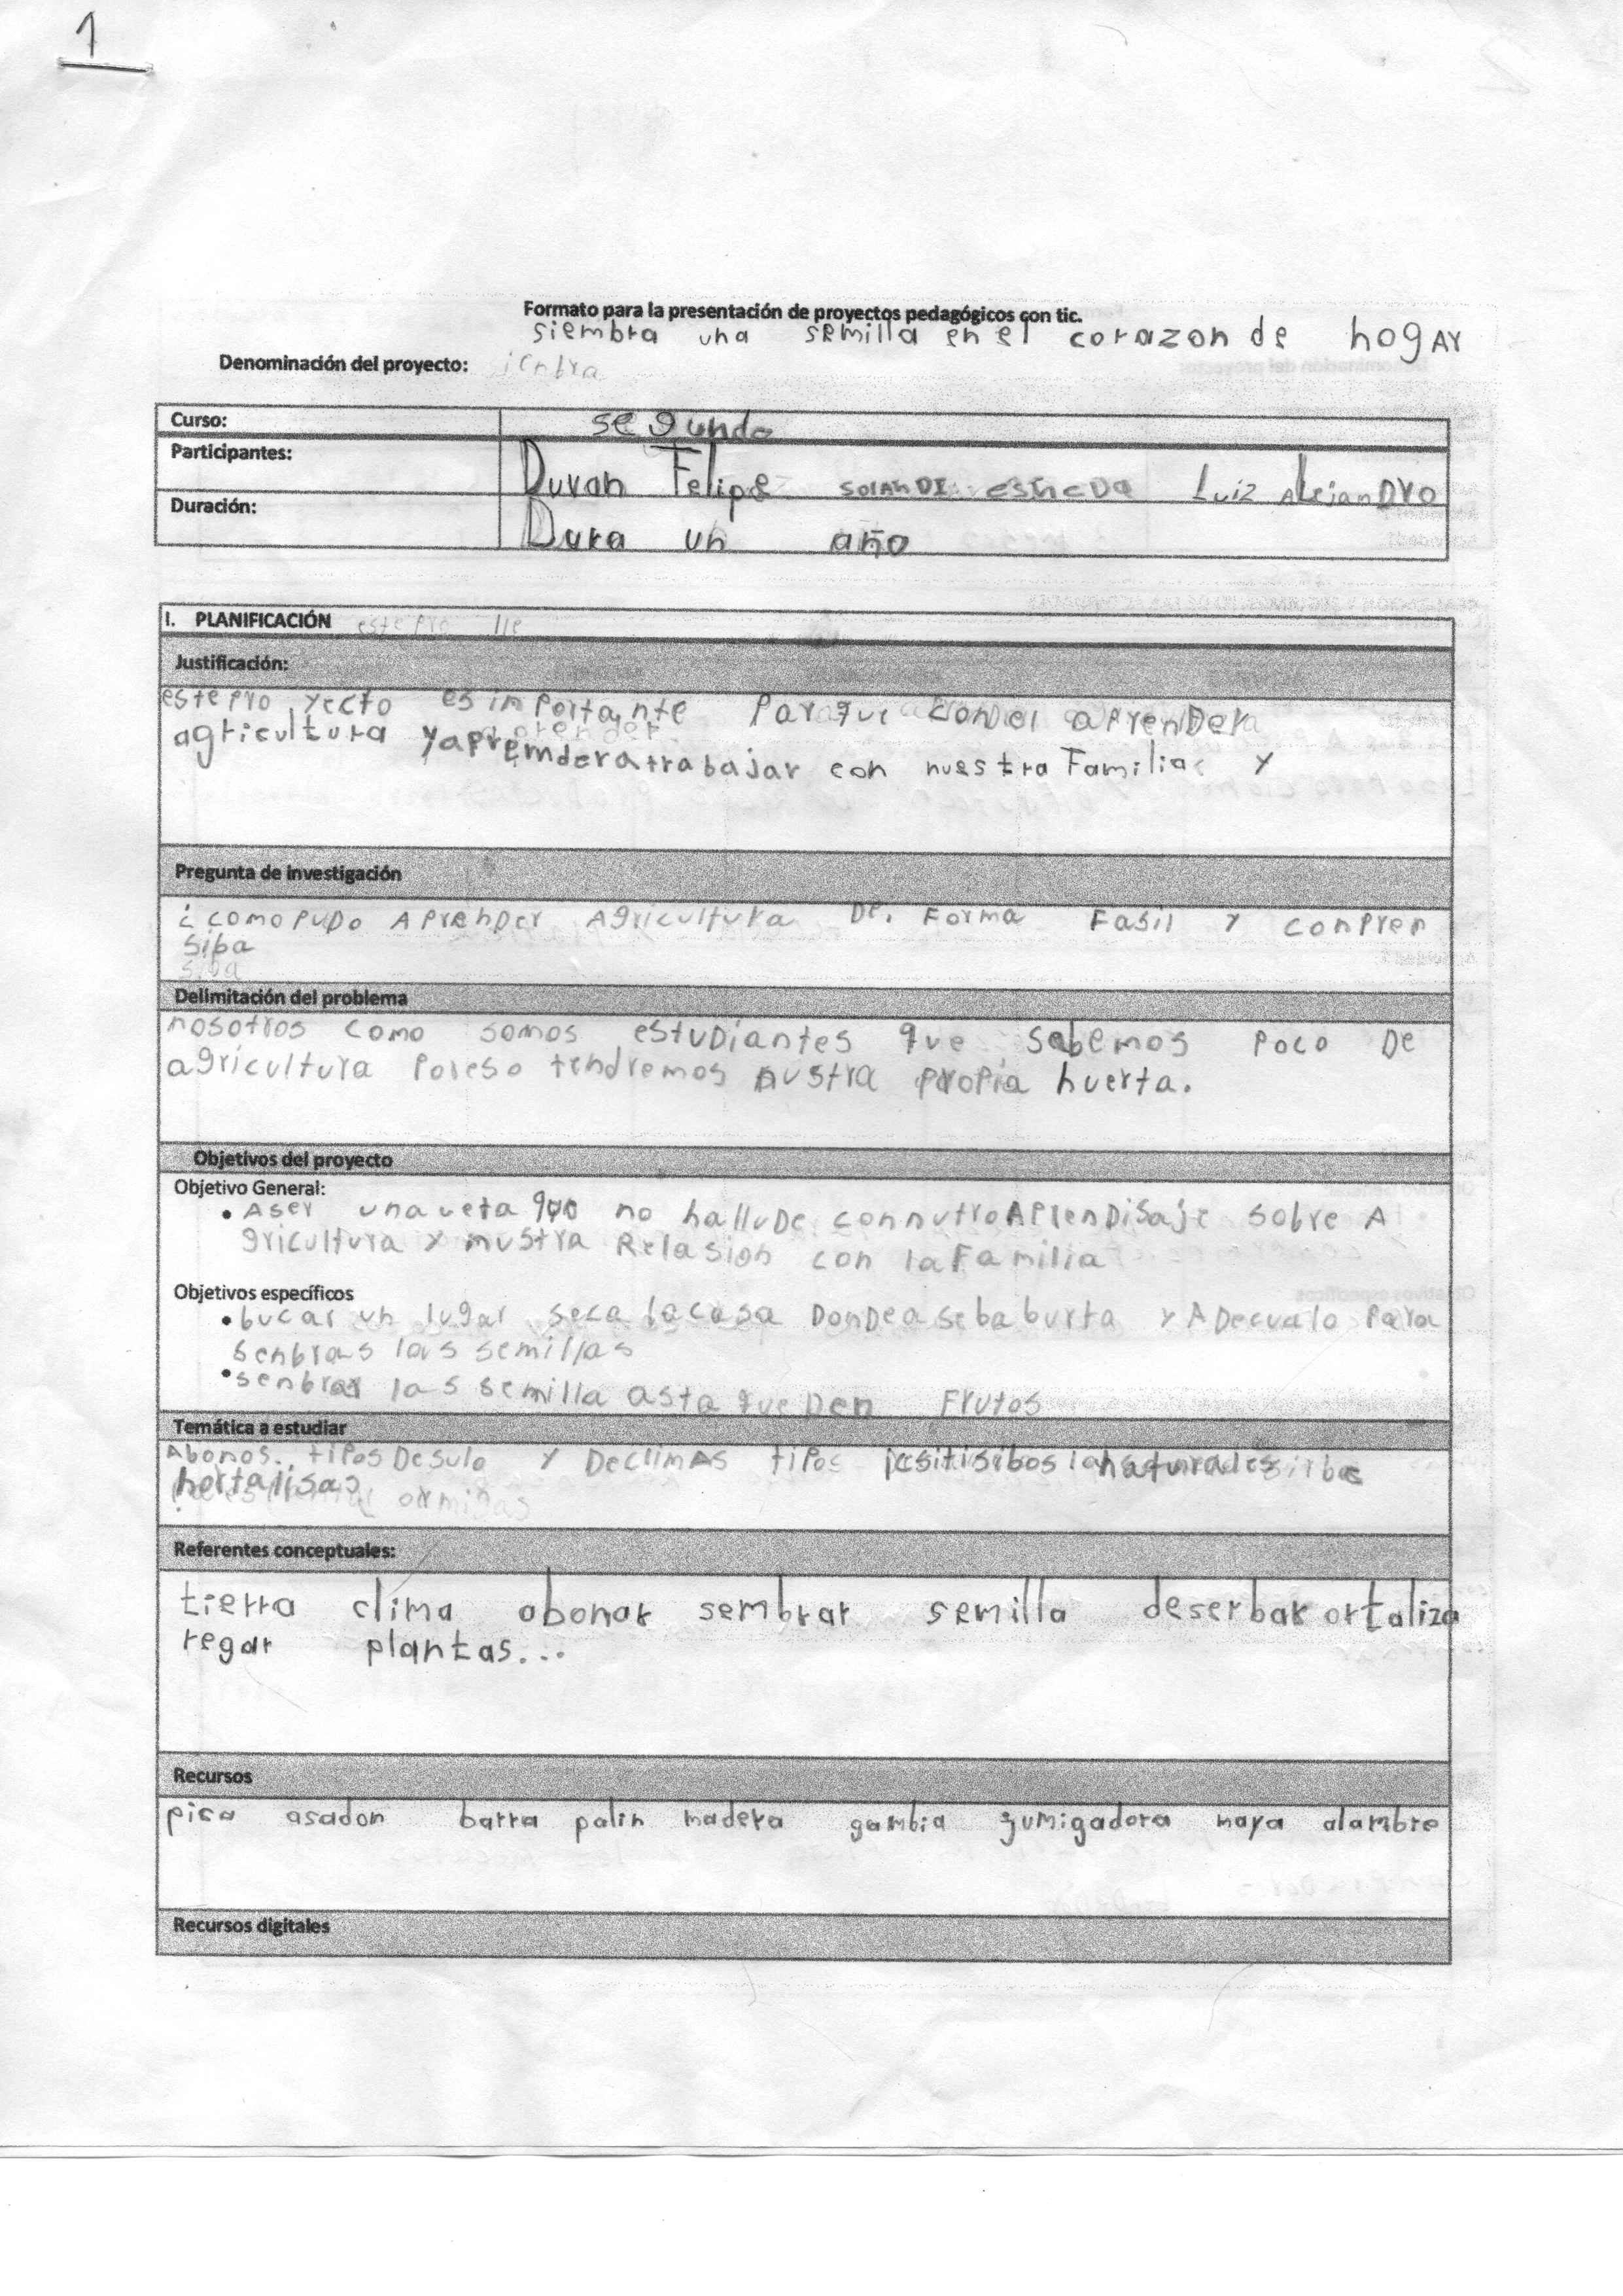 1
Formato para la presentación de proyectos pedagógicos con tic.
siembra una semilla en el corazon de hogAr
Denominación del proyecto:
Curso: segundo
Participantes: Duvan Felipe Luiz AlejanDro
Duración: Dura un año
I. PLANIFICACIÓN este pro
Justificación:
este pro yecto es importante
agricultura y apremdera trabajar con nuestra Familia y
Pregunta de investigación
¿ como puDo AprenDer Agricultura De. Forma Fasil y conpren
siba
siba
Delimitación del problema
nosotros como somos estuDiantes que sabemos poco De
agricultura poreso tendremos nustra propia huerta.
Objetivos del proyecto
Objetivo General:
• Aser una no con AprenDisaje sobre A
gricultura y Relasion con la Familia
Objetivos específicos
• bucar un lugar la casa y ADecualo para
las semillas
• senbrar las semilla asta que Den Frutos
Temática a estudiar
Abonos. tipos De sulo y De climAs tipos naturales
hortalisas
Referentes conceptuales:
tierra clima abonar sembrar semilla deserbar ortaliza
regar plantas...
Recursos
pica asadon barra palin madera gambia fumigadora maya alambre
Recursos digitales